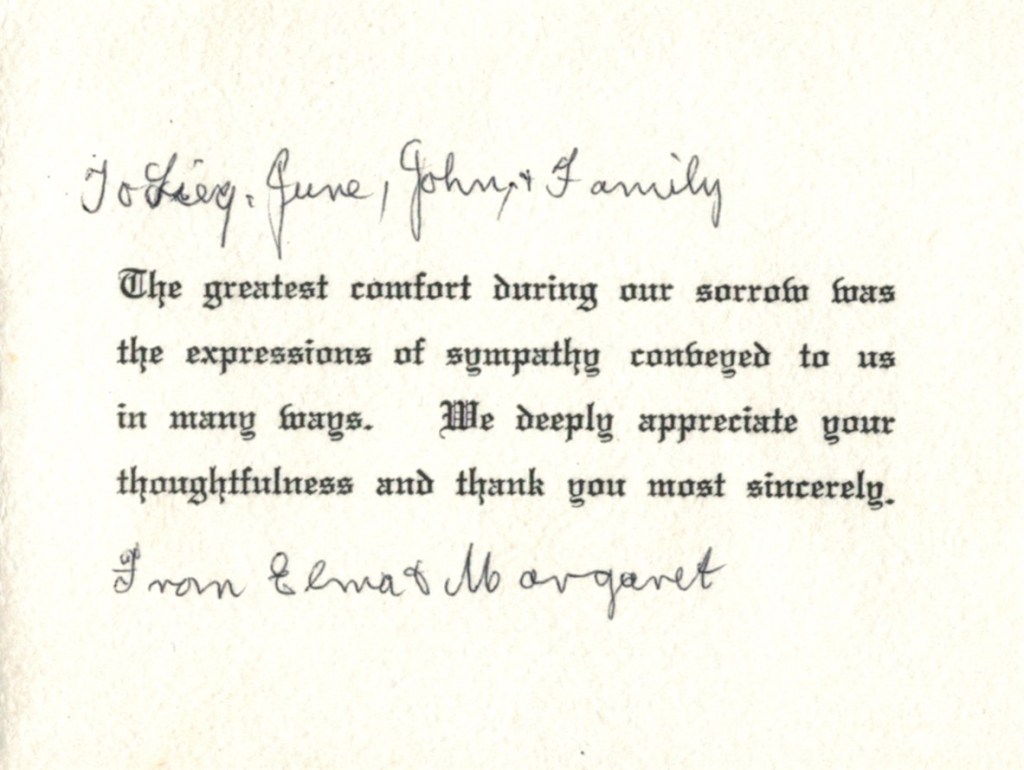 To June, John, & Family
The greatest comfort during our sorrow was
the expressions of sympathy conveyed to us
in many ways. We deeply appreciate your
thoughtfulness and thank you most sincerely.
From Elma & Margaret